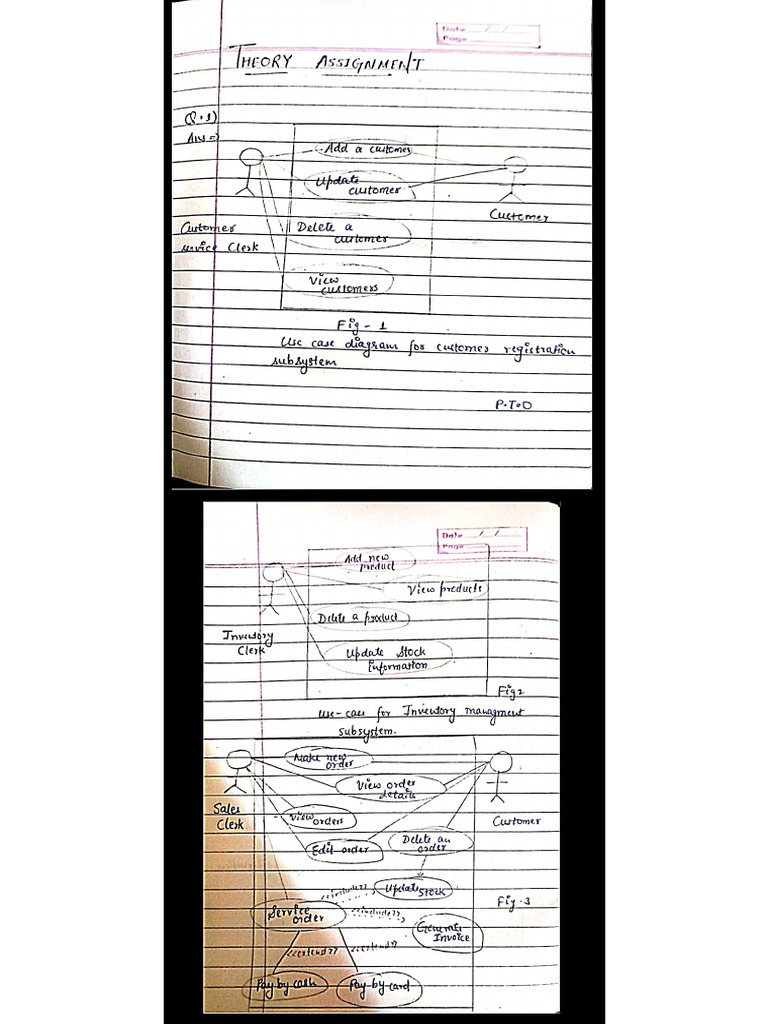 Date / /
Page
THEORY ASSIGNMENT
Q.1)
Ans =>
Add a customer
Update
customer
Customer
Customer
service Clerk
Delete a
customer
View
customers
Fig - 1
Use case diagram for customer registration
subsystem
P.T.O
Date / /
Page
Add new
product
View products
Delete a product
Inventory
Clerk
Update Stock
information
Fig 2
Use-case for Inventory managment
subsystem.
Make new
order
View order
details
Sales
Clerk
View orders
Customer
Edit order
Delete an
order
Update stock
<<include>>
Service
order
<<include>>
Fig.3
Generate
Invoice
<<extend>>
<<extend>>
Pay by cash
Pay-by card